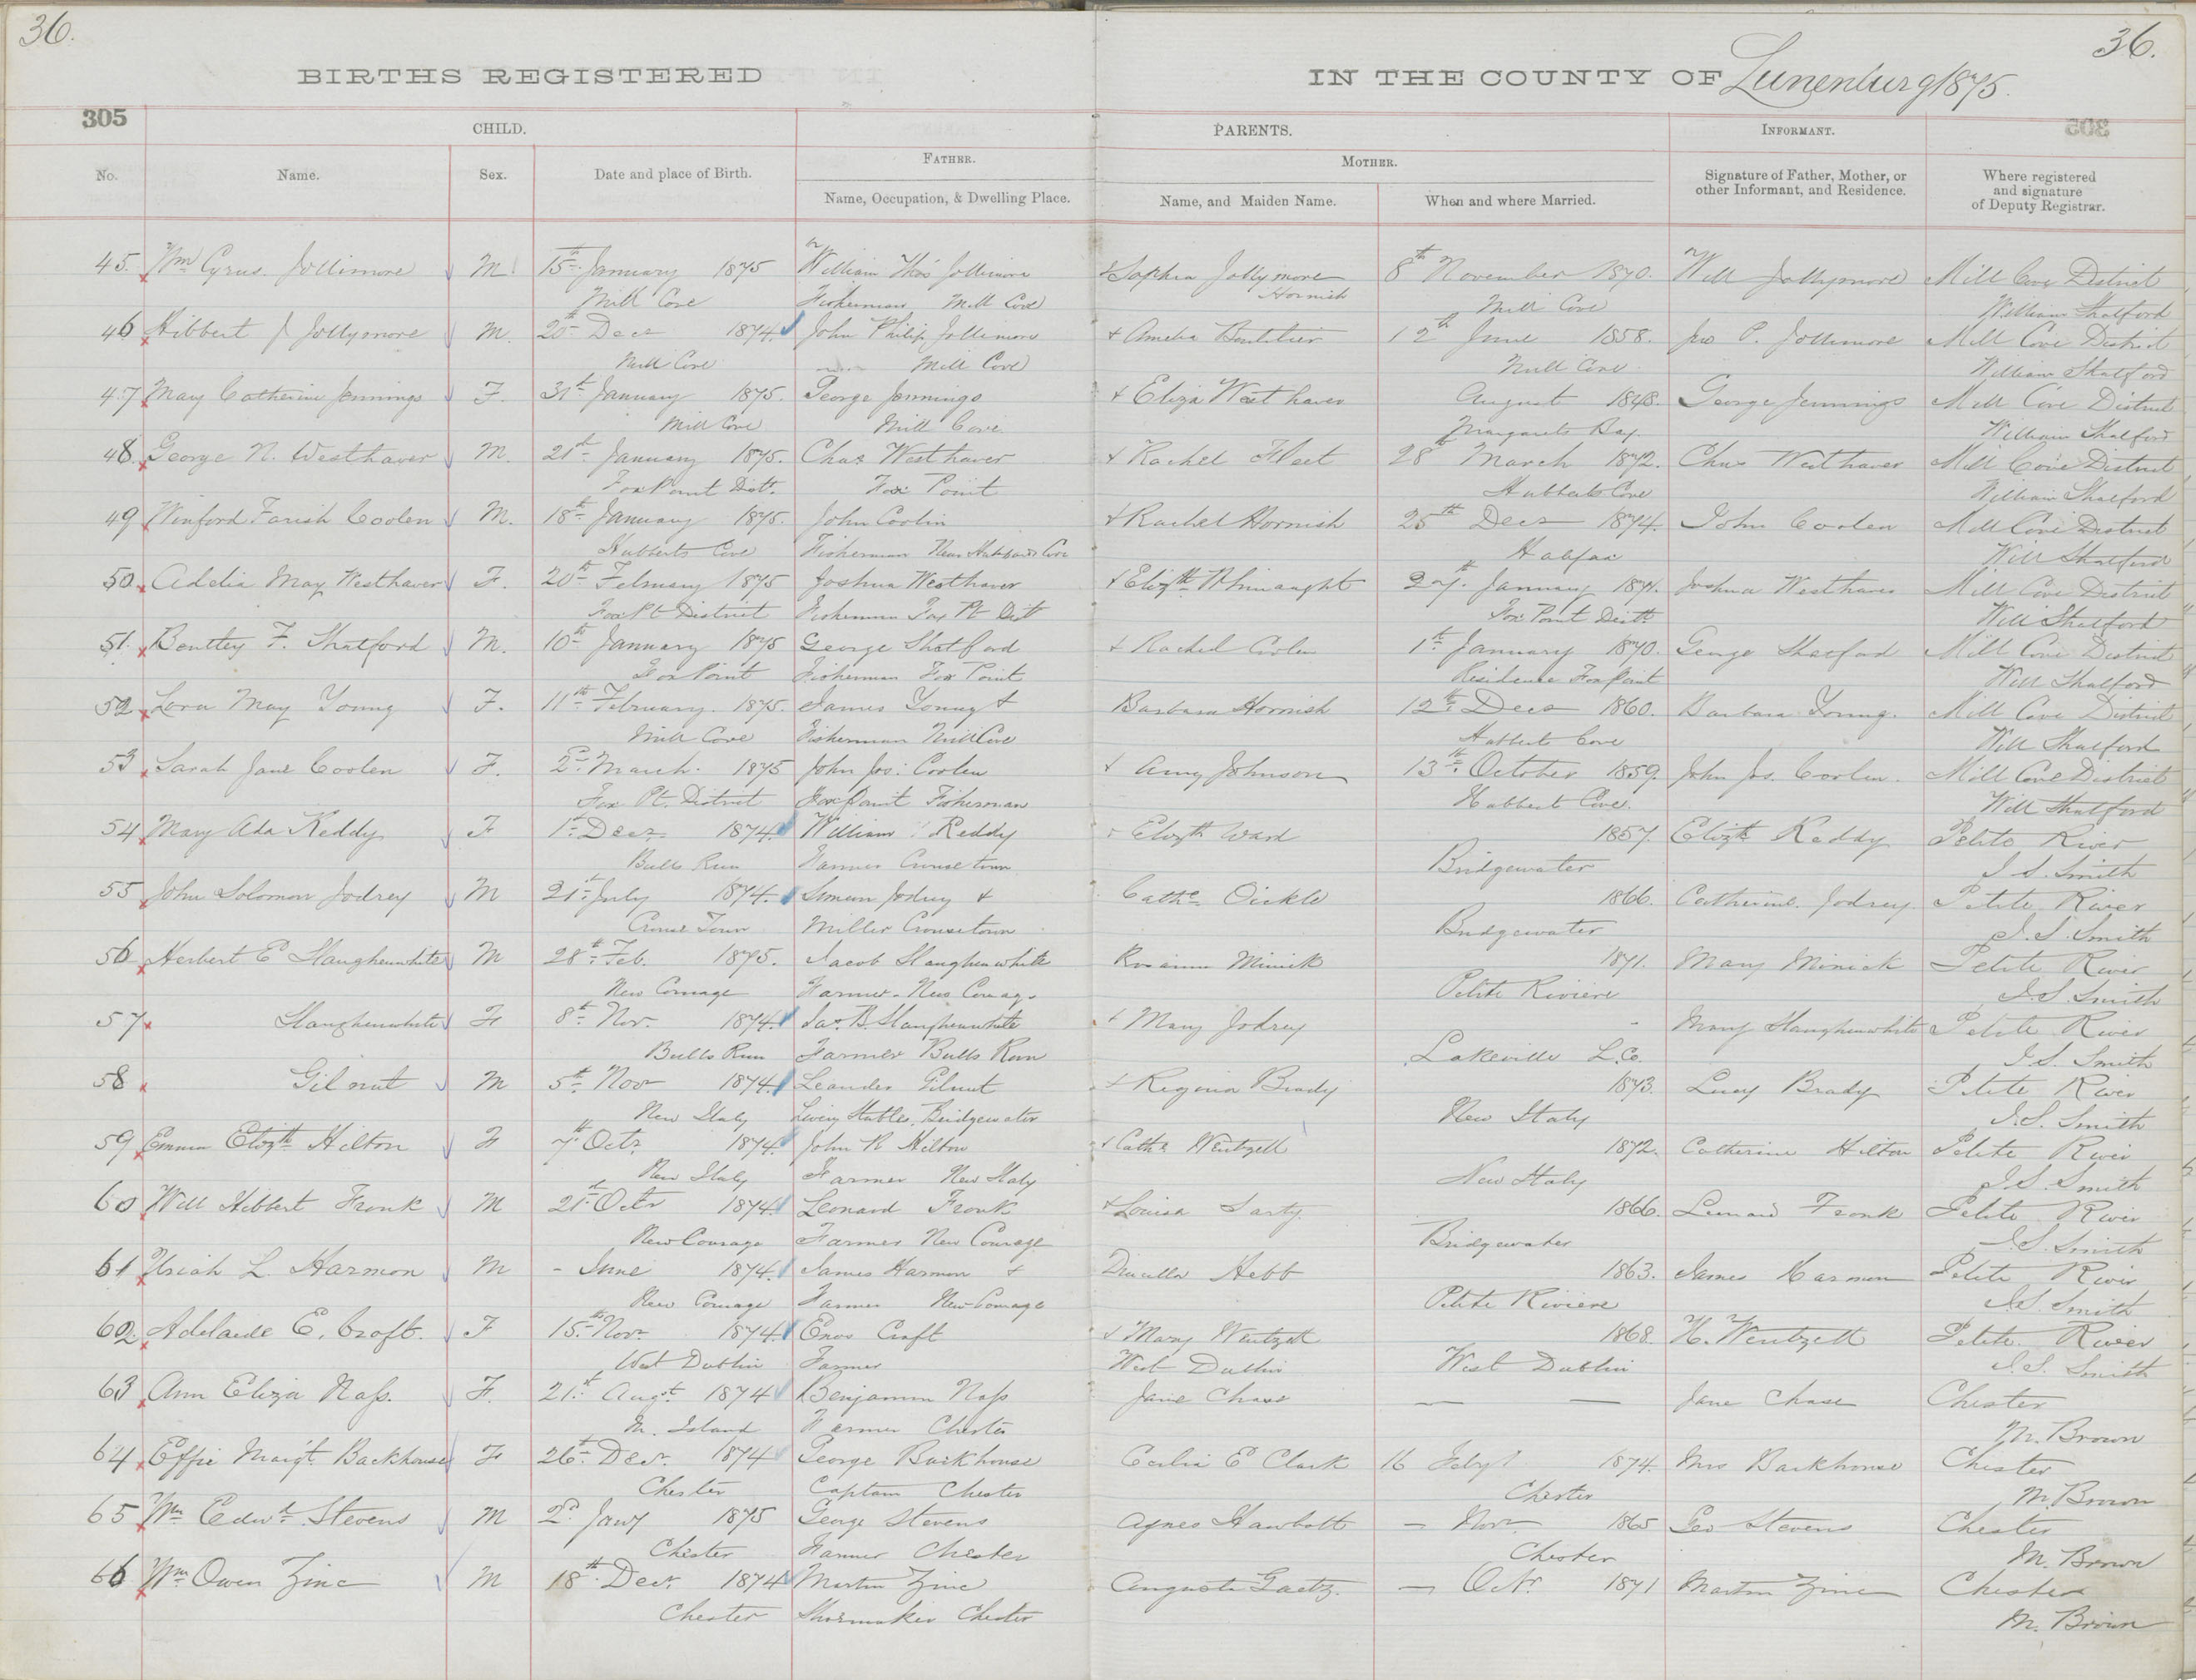 36.
36.
BIRTHS REGISTERED
IN THE COUNTY OF Lunenburg 1875.
305
CHILD.
PARENTS.
INFORMANT.
No.
Name.
Sex.
Date and place of Birth.
FATHER.
Name, Occupation, & Dwelling Place.
MOTHER.
Name, and Maiden Name.
When and where Married.
Signature of Father, Mother, or other Informant, and Residence.
Where registered and signature of Deputy Registrar.
45. Wm Cyrus Jollimore M 15th January 1875 William Thos Jollimore & Sophia Jollymore 8th November 1870. Will Jollymore Mill Cove District
Mill Cove Fisherman Mill Cove Hornish Mill Cove William Shatford
46 Hibbert J Jollymore M. 20th Decr 1874. John Philip Jollimore & Amelia Boutilier 12th June 1858. Jno P. Jollimore Mill Cove District
Mill Cove Mill Cove Mill Cove William Shatford
47 Mary Catherine Jennings F. 31st January 1875. George Jennings & Eliza Westhaver August 1848. George Jennings Mill Cove District
Mill Cove Mill Cove Margarets Bay. William Shatford
48. George N. Westhaver M. 21st January 1875. Chas Westhaver & Rachel Fleet 28th March 1872. Chas Westhaver Mill Cove District
Fox Point Distt. Fox Point Hubberts Cove William Shatford
49 Winford Farish Coolen M. 18th January 1875. John Coolin & Rachel Hornish 25th Decr 1874. John Coolen Mill Cove District
Hubberts Cove Fisherman Near Hubbards Cove Halifax Will Shatford
50. Adelia May Westhaver F. 20th February 1875 Joshua Westhaver & Elizth Whinaught 27th January 1871. Joshua Westhaver Mill Cove District
Fox Pt District Fisherman Fox Pt Dist Fox Point Distt Will Shatford
51. Bentley F. Shatford M. 10th January 1875 George Shatford & Rachel Coolen 1st January 1870. George Shatford Mill Cove District
Fox Point Fisherman Fox Point Residence Fox Point Will Shatford
52. Lora May Young F. 11th February. 1875. James Young & Barbara Hornish 12th Decr 1860. Barbara Young. Mill Cove District
Mill Cove Fisherman Mill Cove Hubberts Cove Will Shatford
53 Sarah Jane Coolen F. 2d March. 1875 John Jos: Coolen & Amy Johnson 13th October 1859. John Jos. Coolen. Mill Cove District
Fox Pt. District Fox Point Fisherman Hubbert Cove. Will Shatford
54 Mary Ada Keddy F 1st Decr 1874. William Keddy & Elizth Ward 1857. Elizth Keddy Petite River
Bulls Run Farmer Crousetown Bridgewater J S. Smith
55 John Solomon Jodrey M 21st July 1874. Simeon Jodrey & Cathe Oickle 1866. Catherine Jodrey Petite River
Crouse Town Miller Crousetown Bridgewater J. S. Smith
56 Herbert E Slaughenwhite M 28th Feb. 1875. Jacob Slaughenwhite Rosanna Minick 1871. Mary Minick Petite River
New Cornage Farmer - New Petite Riviere J. S. Smith
57 Slaughenwhite F 8th Nov. 1874. Jas. B. Slaughenwhite & Mary Jodrey - Mary Slaughenwhite Petite River
Bulls Run Farmer Bulls Run Lakeville L. Co. J S. Smith
58 Gilnut M 5th Novr 1874. Leander Gilnut & Regina Brady 1873. Lucy Brady Petite River
New Italy Livery Stables. Bridgewater New Italy J. S. Smith
59 Emma Elizth Hilton F 7th Octr. 1874. John R Hilton & Cathe Wentzell 1872. Catherine Hilton Petite River
New Italy Farmer New Italy New Italy J. S. Smith
60 Will Hibbert Fronk M 21st Octr 1874. Leonard Fronk & Louisa Sarty 1866. Leonard Fronk Petite River
New Cornage Farmer New Cornage Bridgewater J. S. Smith
61 Uriah L. Harmon M - June 1874. James Harmon & Drucilla Hebb 1863. James Harmon Petite River
New Cornage Farmer New Cornage Petite Riviere J. S. Smith
62. Adelaide E. Croft. F 15th Novr. 1874. Enos Croft & Mary Wentzell 1868. H. Wentzell Petite River
West Dublin Farmer West Dublin West Dublin J. S. Smith
63 Ann Eliza Nass. F. 21st Augt. 1874 Benjamin Nass Jane Chase — — Jane Chase Chester
M. Island Farmer Chester M. Brown
64 Effie Margt. Backhouse F 26th Decr. 1874 George Backhouse Cecilia E Clark 16 Feby 1874. Mrs Backhouse Chester
Chester Captain Chester Chester M. Brown
65 Wm Edwd. Stevens M 2d Jany 1875 George Stevens Agnes Hawbolt — Novr 1865 Geo Stevens Chester
Chester Farmer Chester Chester M. Brown
66 Wm Owen Zinc M 18th Decr. 1874 Martin Zinc Augusta Gaetz. — Octr. 1871 Martin Zinc Chester
Chester Shoemaker Chester M. Brown